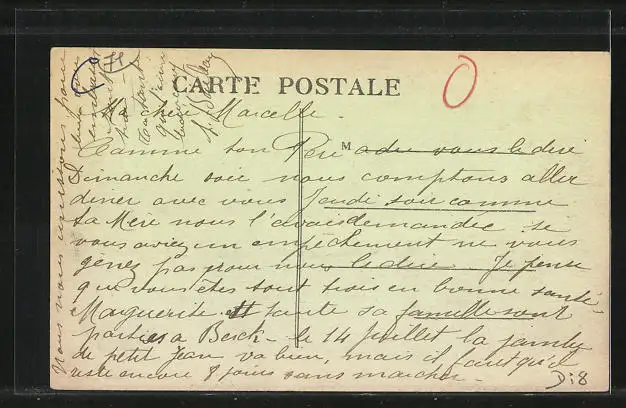 CARTE POSTALE
Ma chère Marcelle.
Comme ton Père M a du vous le dire
Dimanche soir nous comptons aller
diner avec vous Jeudi soir comme
ta Mère nous l'avait demandée se
vous aviez un empêchement ne vous
genez pas pour nous le dire. Je pense
que vous êtes tout trois en bonne santé.
Marguerite et toute sa famille sont
parties a Berck. le 14 Juillet la jambe
de petit Jean va bien, mais il faut qu'il
reste encore 8 jours sans marcher.
Di8
Nous nous